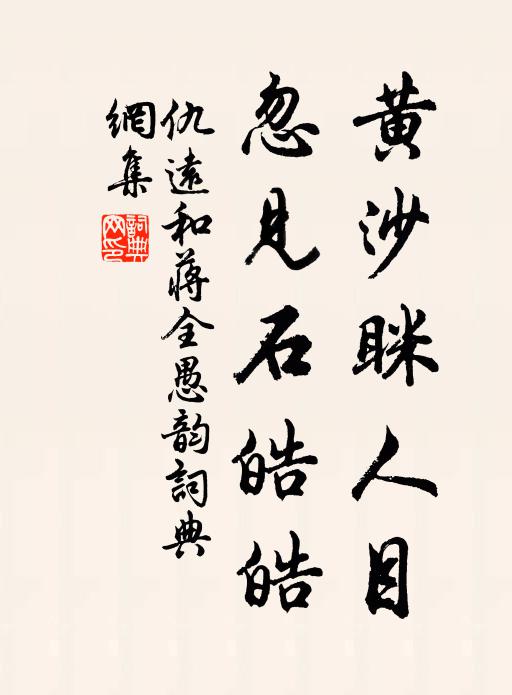 黄沙眯人目
忽見石皓皓
仇遠和蔣全愚韵詞典
網集
詞典網印